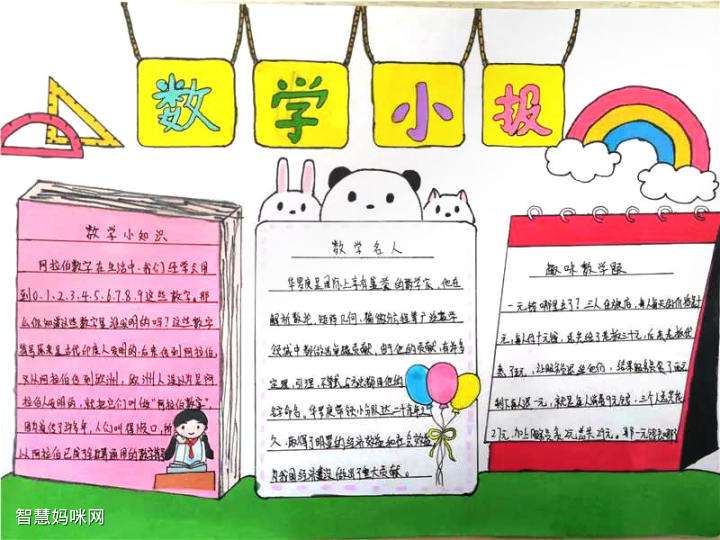 数学小报
数学小知识
阿拉伯数字在生活中,我们经常会用
到0.1.2.3.4.5.6.7.8.9这些数字。那
么你知道这些数字是谁发明的吗?这些数字
符号原来是古代印度人发明的,后来传到阿拉伯,
又从阿拉伯传到欧洲,欧洲人误以为是阿
拉伯人发明的,就把它们叫做"阿拉伯数字",
因为流传了许多年,人们叫得顺口,所
以阿拉伯已成了全球通用的数字
数学名人
华罗庚是国际上享有盛誉的数学家,他在
解析数论,矩阵几何,偏微分
领域中都做出卓越贡献,由于他的贡献,有许多
定理、引理、不等式与方法都用他的
名命名。华罗庚带领小分队达二十年之
久,取得了明显的经济效益和社会效益
为我国经济建设做出了重大贡献。
趣味数学题
一元钱哪里去了?三人住旅店,每人每天的价格是十
元,每人付十元钱,总共给了老板三十元,后来老板
了五元,让服务员退给他们,结果服务员
剩下每人退一元,就是每人
27元,加上服务员2元总共29元。那一元钱去哪了
智慧妈咪网